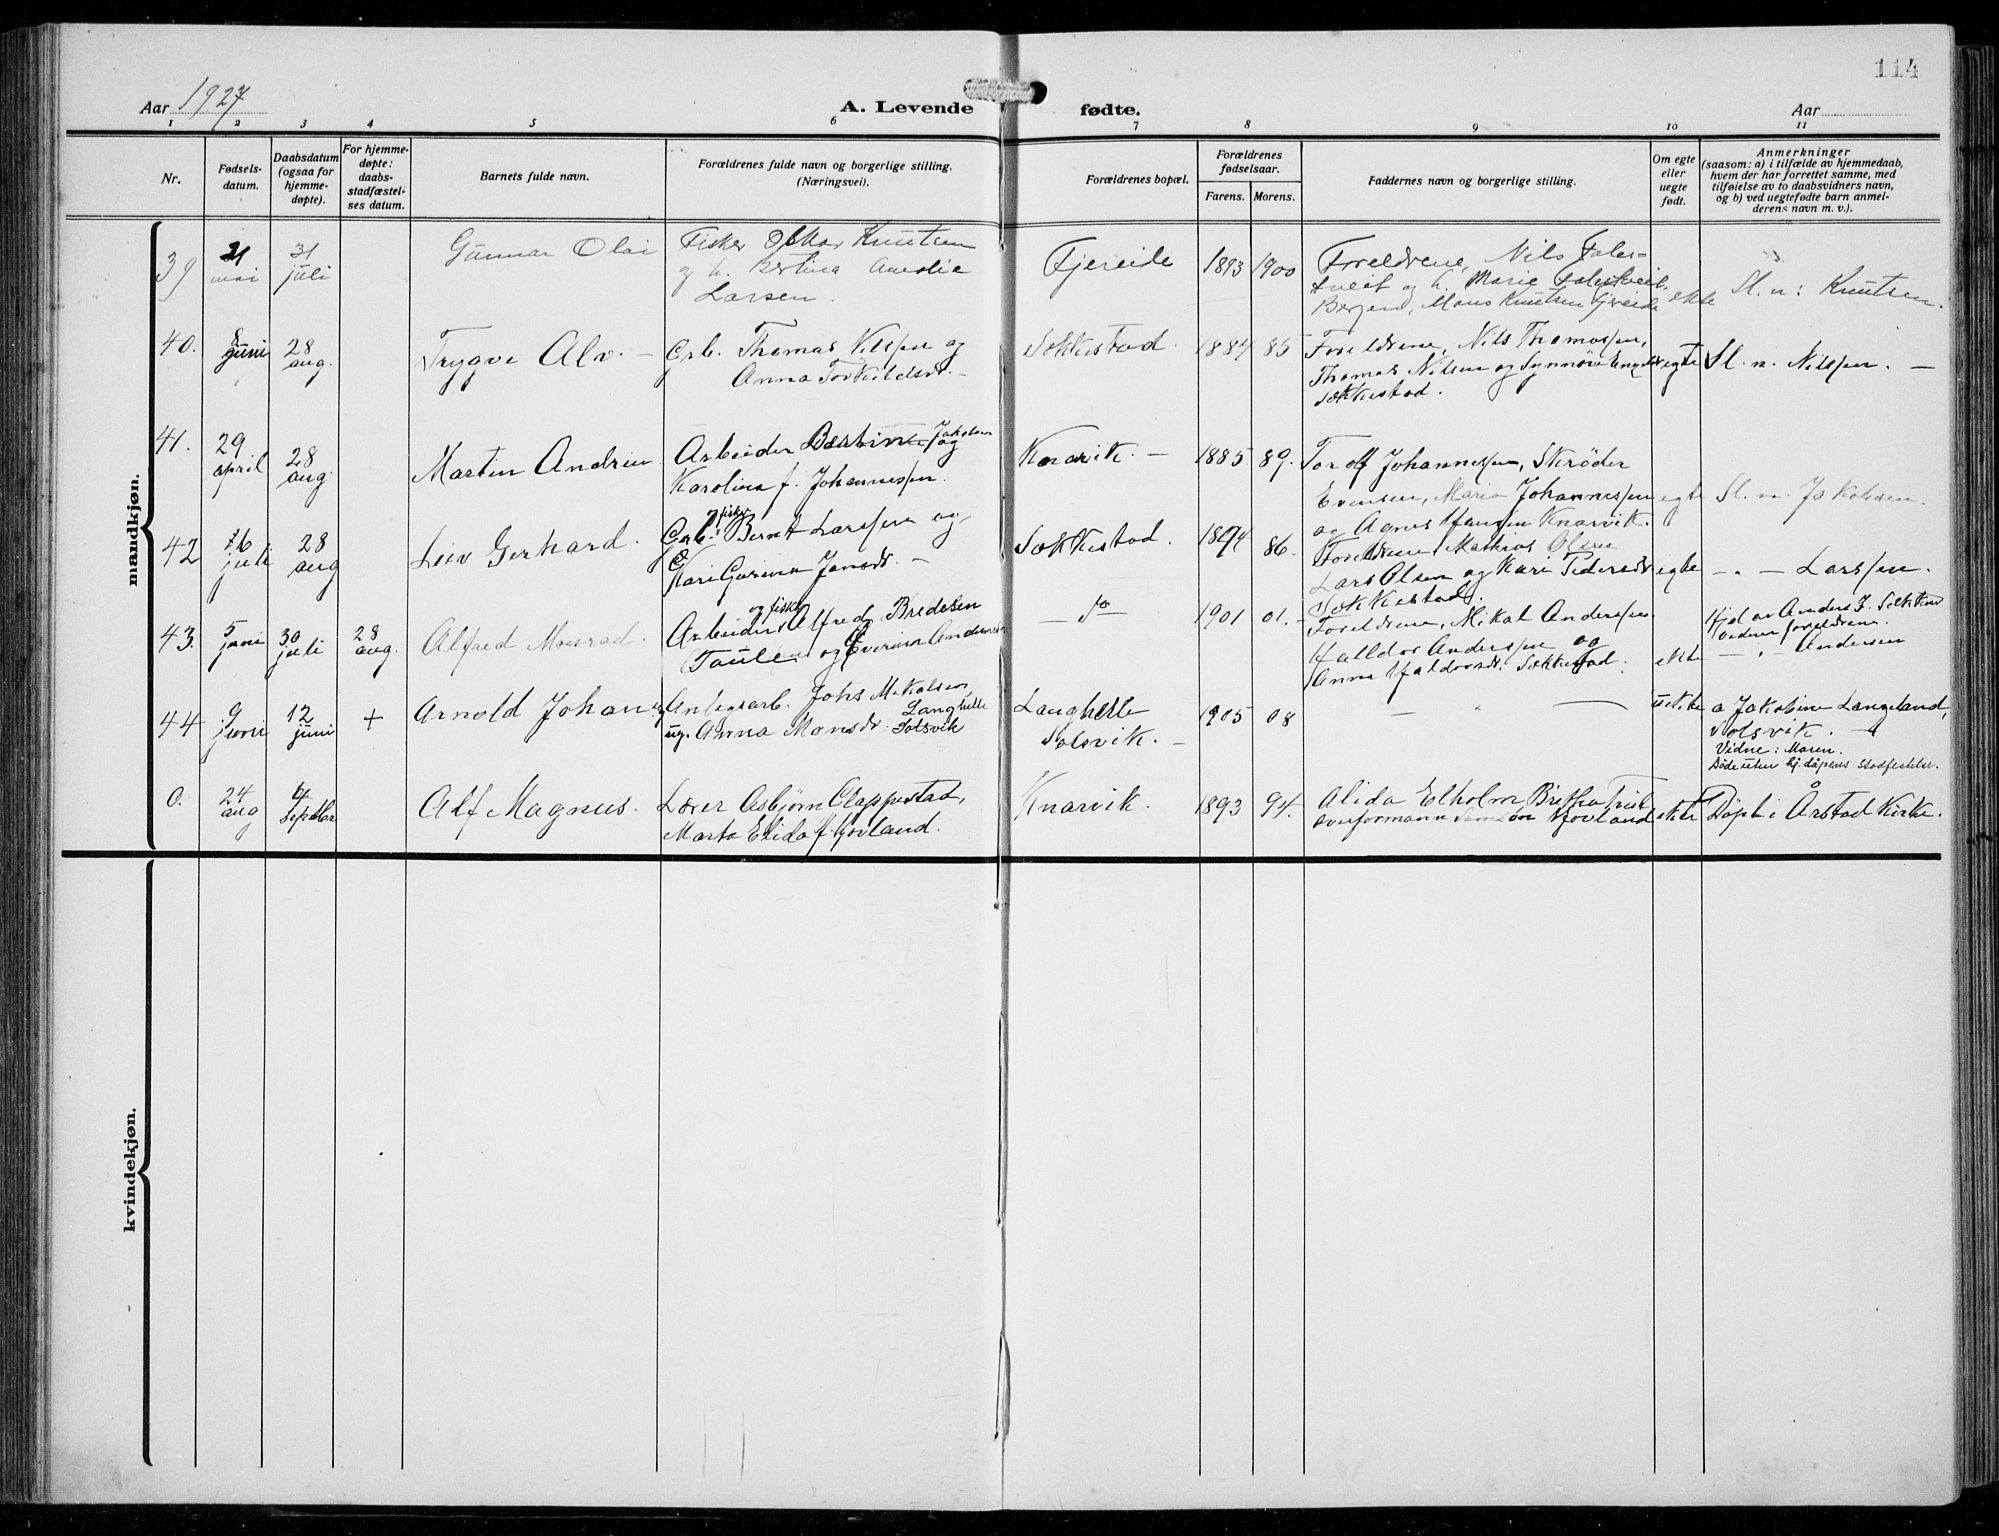 114
Aar 1927
A. Levende fødte.
Aar
1 2 3 4 5 6 7 8 9 10 11
Nr.
Fødsels-
datum.
Daabsdatum
(ogsaa for
hjemme-
døpte).
For hjemme-
døpte:
daabs-
stadfæstel-
ses datum.
Barnets fulde navn.
Forældrenes fulde navn og borgerlige stilling.
(Næringsvei).
Forældrenes bopæl.
Forældrenes
fødselsaar.
Farens. Morens.
Faddernes navn og borgerlige stilling.
Om egte
eller
uegte
født.
Anmerkninger
(saasom: a) i tilfælde av hjemmedaab,
hvem der har forrettet samme, med
tilføielse av to daabsvidners navn,
og b) ved uegtefødte barn anmel-
derens navn m. v.).
mandkjøn.
39
31
mai
31
juli
Gunnar Olai
Fisker Oskar Knutsen
og h. Bertina Amalie
Larsen.
Fjereide
1893 1900
Foreldrene, Nils Fales-
tveit og h. Marie Falestveit,
Bergen, Mons Knutsen Fjereide
ekte
Sl. n: Knutsen.
40.
8
juni
28
aug.
Trygve Alv. —
Grb. Thomas Nilssen og
Anna Torkildsdr. —
Søkkestad.
1884 85
Foreldrene, Nils Thomassen,
Thomas Nilsen og Synnøve
Søkkestad.
egte
Sl. n. Nilssen. —
41.
29
april
28
aug.
Martin Andrin
Arbeider Bertin Jakobsen og
Karolina f. Johannessen.
Knarvik. —
1885 89.
Torolf Johannessen, Skrøder
Evensen, Maria Johannessen
og Agnes Hansen Knarvik.
egte
Sl. n. Jakobsen.
42
16
juli
28
aug
Leiv Gerhard.
Grb. og fisker Bernt Larssen og
Kari Gurina Jansdr. —
Søkkestad.
1894 86.
Foreldrene, Mathias Olsen
Lars Olsen og Kari Pedersdr
Søkkestad.
egte
— " — Larssen.
43.
5
juni
30
juli
28
aug.
Alfred Monrad.
Arbeider og fisker Alfred Bredesen
Taule og Everine Andersen
— do —
1901 01.
Foreldrene, Mikal Anderssen
Halldor Anderssen og
Anna Haldorsdr. Søkkestad.
ekte
Hjd av Anders J. Søkkestad
Vidner foreldrene.
— " — Andersen
44
9
juni
12
juni
+
Arnold Johan
Anlegsarb. Johs Mikalsen, Langhelle
ug. Anna Monsdr. Solsvik
Langhelle
Solsvik. —
1905 08
— " —
uekte
a Jakobine Langeland,
Solsvik. —
Vidne: Maren.
Døde uten hj. døpens stadfestelse.
0.
24
aug
4
septbr
Alf Magnus.
Lærer Asbjørn Clappestad,
Marta Elida f. Hovland.
Knarvik.
1893 94.
Alida Eholm
Hovland
ekte
Døpt i Årstad Kirke.
kvindekjøn.